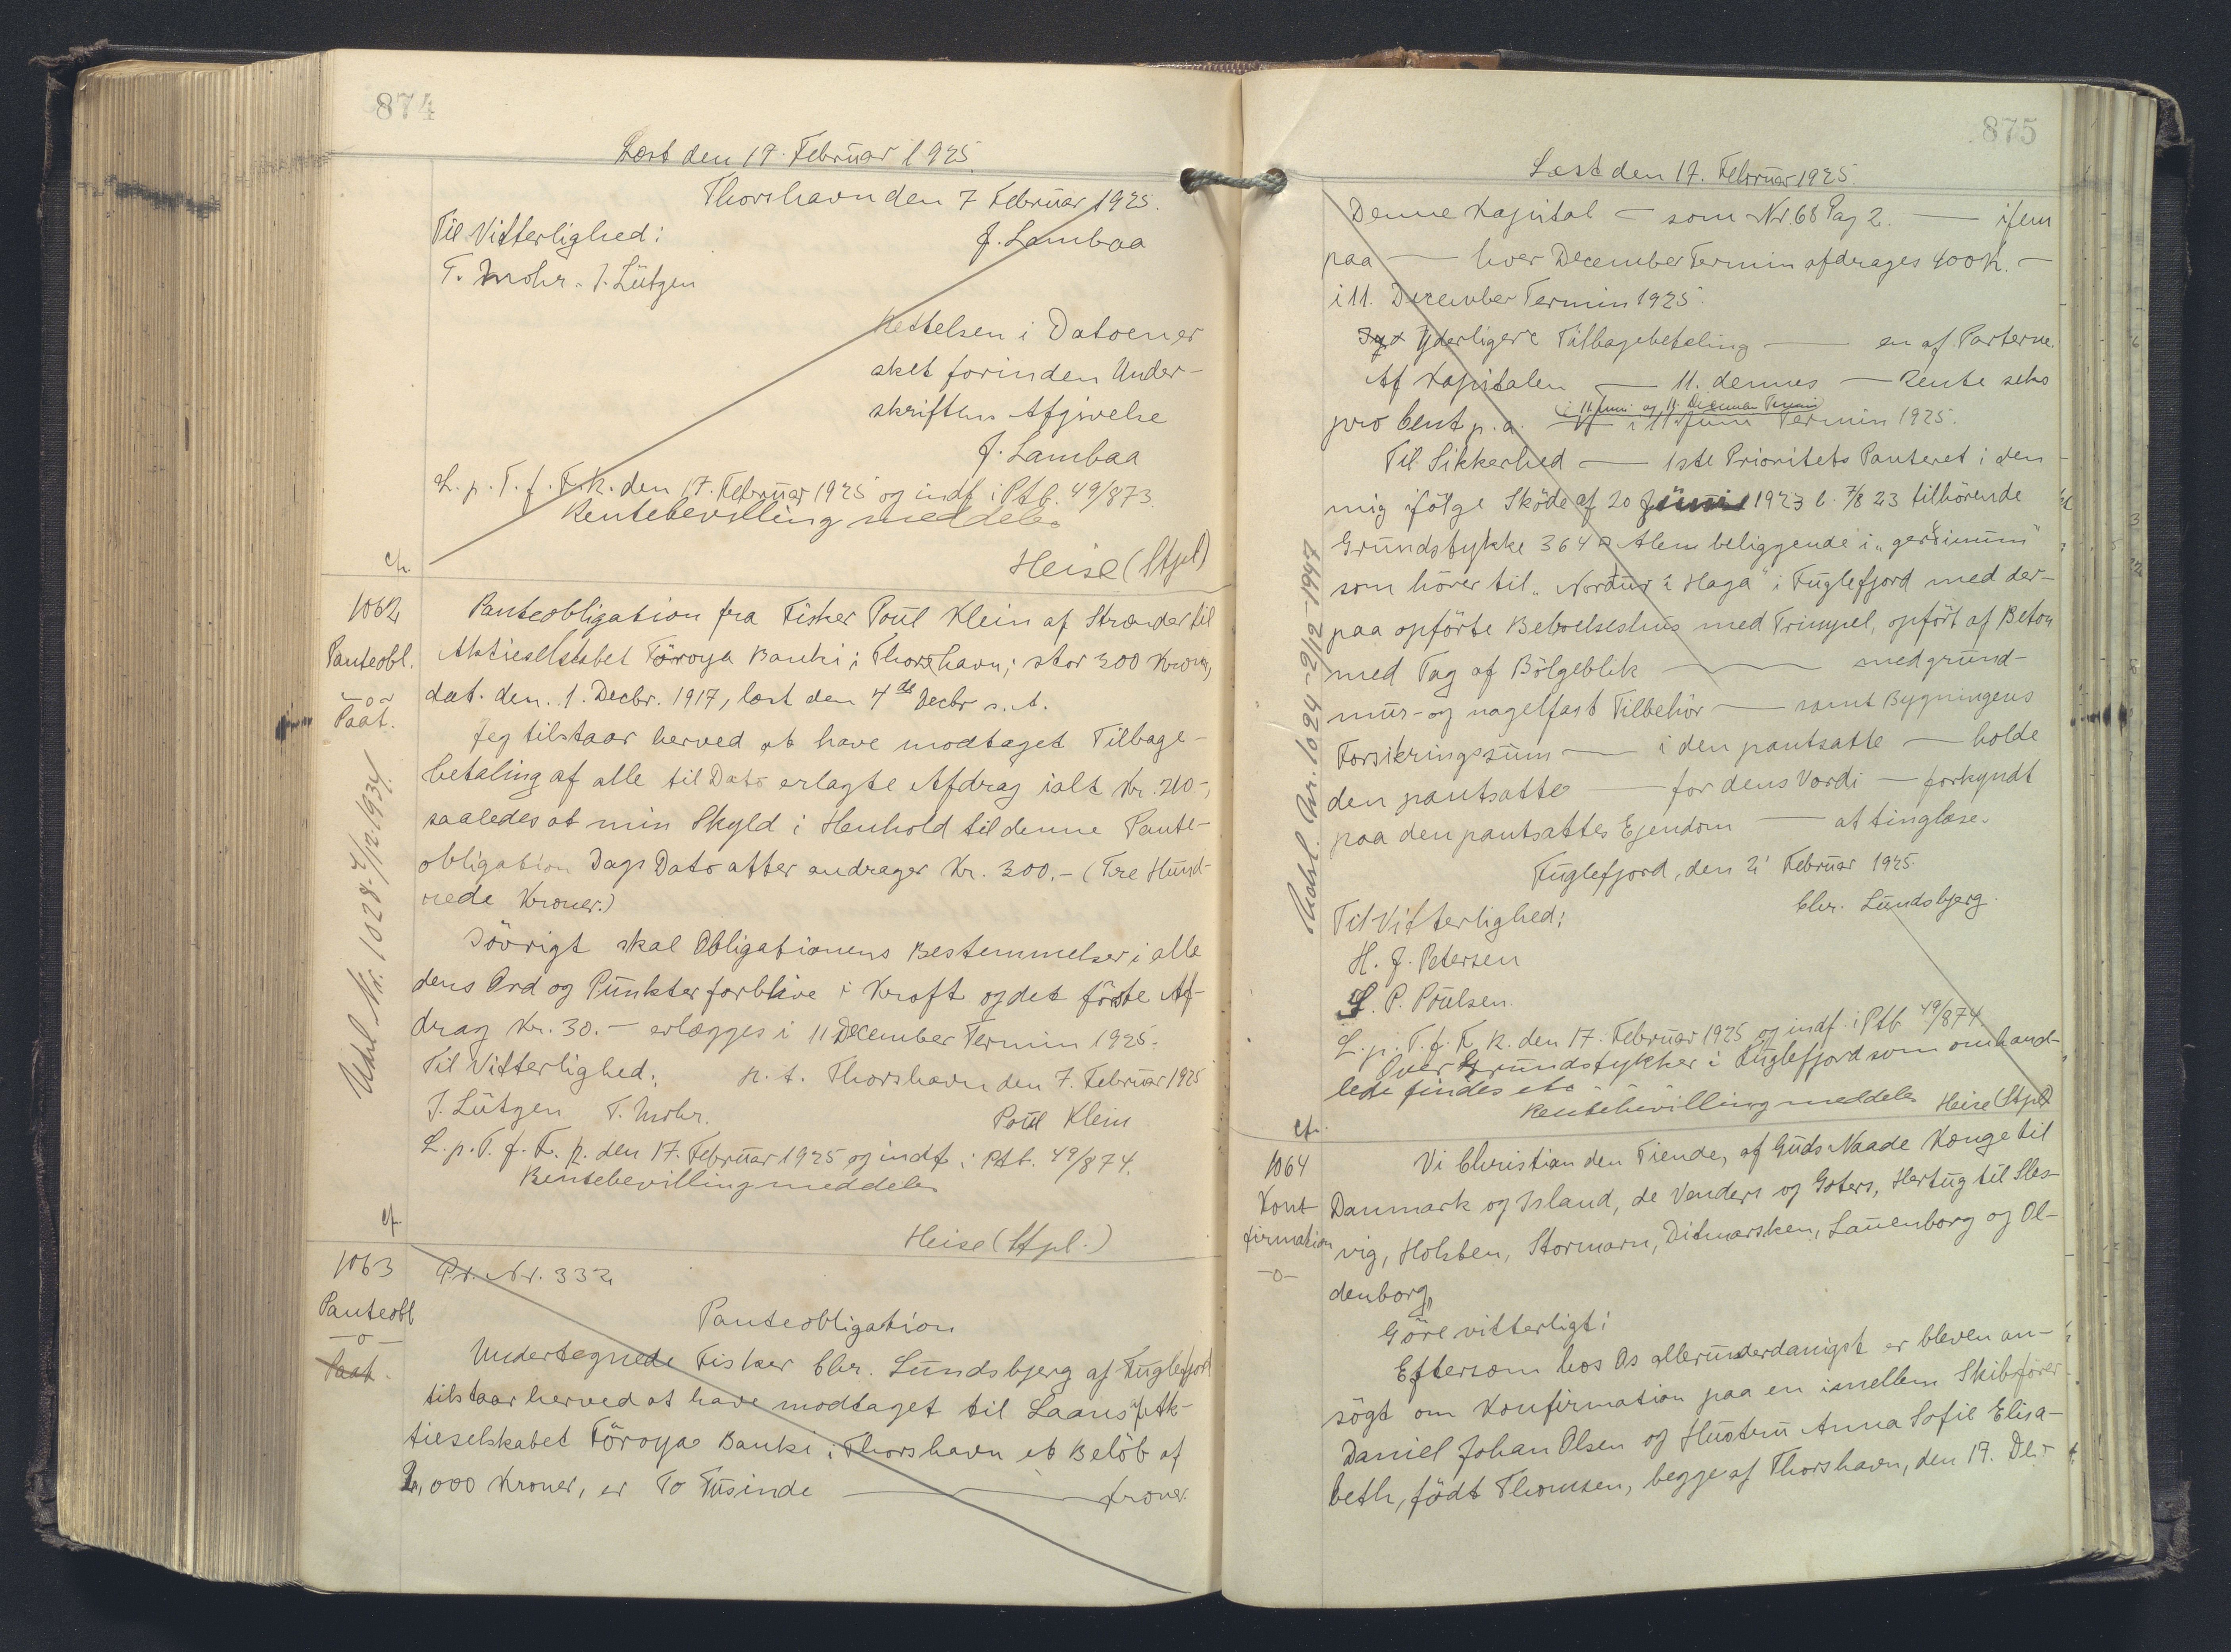 874
Læst den 17. Februar 1925.
Thorshavn den 7 Februar 1925.
Til Vitterlighed:
J. Lambaa
T. Mohr. J. Lützen
Rettelsen i Datoen er
sket forinden Under-
skriftens Afgivelse
J. Lambaa
L. p. T. f. F. K. den 17. Februar 1925 og indf. i Ptb. 49/873.
Rentebevilling meddeles
Heise (Stpl)
cfr.
1062
Panteobl.
-o-
Paat.
Udsl. Nr. 1028 - 7/12 1934.
Panteobligation fra Fisker Poul Klein af Strænder til
Aktieselskabet Föroya Banki i Thorshavn; stor 300 Kroner,
dat. den. 1. Decbr. 1917, læst den 4de Decbr s. A.
Jeg tilstaar herved at have modtaget Tilbage-
betaling af alle til Dato erlagte Afdrag ialt Kr. 210-,
saaledes at min Skyld i Henhold til denne Pante-
obligation Dags Dato atter andrager Kr. 300.- (Tre Hund-
rede Kroner.)
Iövrigt skal Obligationens Bestemmelser i alle
dens Ord og Punkter forblive i Kraft og det förste Af-
drag Kr. 30.- erlægges i 11 December Termin 1925.
Til Vitterlighed:
p. t. Thorshavn den 7. Februar 1925
J. Lützen T. Mohr.
Poul Klein
L. p. T. f. F. K. den 17. Februar 1925 og indf. i Ptb. 49/874.
Rentebevilling meddeles
Heise (Stpl.)
cf.
1063
Panteobl
-o-
Paat.
Pr. Nr. 332
Panteobligation
Undertegnede Fisker Chr. Lundsbjerg af Fuglefjord
tilstaar herved at have modtaget til Laans af Ak-
tieselskabet Föroya Banki i Thorshavn et Belöb af
2,000 Kroner, er To Tusinde — Kroner.
875
Læst den 17. Februar 1925.
Denne Kapital — som Nr. 68 Pag 2. — ifem
paa — hver December Termin afdrages 400 K. —
i 11. December Termin 1925.
Yderligere Tilbagebetaling — en af Parterne.
Af Kapitalen — 11. dennes — Rente seks
i 11 Juni og 11. December Termin
pro Cent p. a. — i 11 Juni Termin 1925.
Til Sikkerhed — 1ste Prioritets Panteret i den
mig ifölge Sköde af 20 Juni 1923 l. 7/8 23 tilhörende
Grundstykke 364 □ Alen beliggende i „gerdinum"
som hörer til „Nordur i Haga" i Fuglefjord med der-
paa opförte Beboelseshus med Trimpel, opfört af Beton
med Tag af Bölgeblik — med grund-
mur- og nagelfast Tilbehör — samt Bygningens
Forsikringssum — i den pantsatte — holde
den pantsatte — for dens Værdi — forkyndt
paa den pantsattes Ejendom — at tinglæse.
Udsl. Nr. 1024 - 2/12-1947
Fuglefjord, den 2' Februar 1925.
Chr. Lundsbjerg.
Til Vitterlighed:
H. J. Petersen
S. P. Poulsen.
L. p. T. f. F. K. den 17. Februar 1925 og indf. i Ptb 49/874.
Over Grundstykker i Fuglefjord som omhand-
lede findes etc
Rentebevilling meddeles Heise (Stpl)
cfr.
1064
Kont
firmation
-o-
Vi Christian den Tiende, af Guds Naade Konge til
Danmark og Island, de Venders og Goters, Hertug til Sles-
vig, Holsten, Stormarn, Ditmarsken, Lauenborg og Ol-
denborg,
Göre vitterligt:
Eftersom hos Os allerunderdanigst er bleven an-
sögt om Konfirmation paa en imellem Skibsförer
Daniel Johan Olsen og Hustru Anna Sofie Elisa-
beth, född Thomsen, begge af Thorshavn, den 17. De-